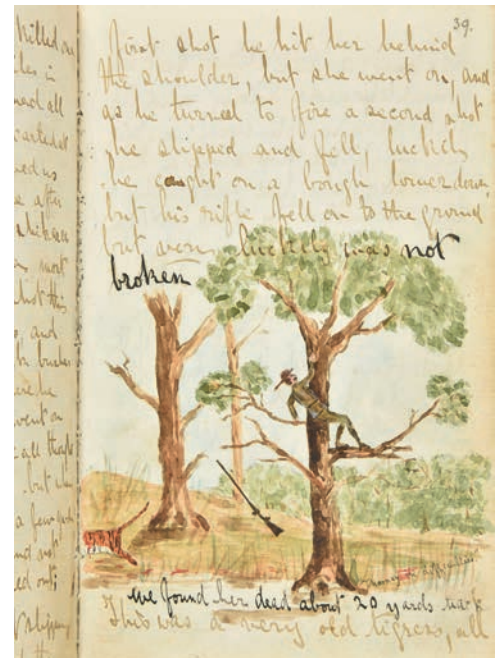 killed on
in
all
carted at
us
after
most
this
and
bushes
he
went on
all
but
a few
not
out;
39.
first shot he hit her behind
the shoulder, but she went on, and
as he turned to fire a second shot
he slipped and fell, luckily
he caught on a bough lower down,
but his rifle fell on to the ground
but very luckily was not
broken
we found her dead about 20 yards back
This was a very old tigress, all